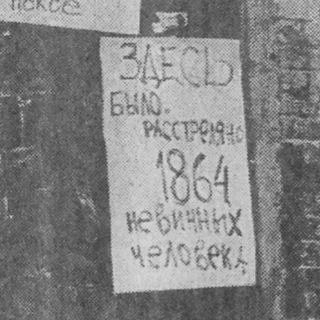 ПСКОЕ
ЗДЕСЬ
БЫЛО.
РАССТРЕЛЯНО
1864
невинных
человека